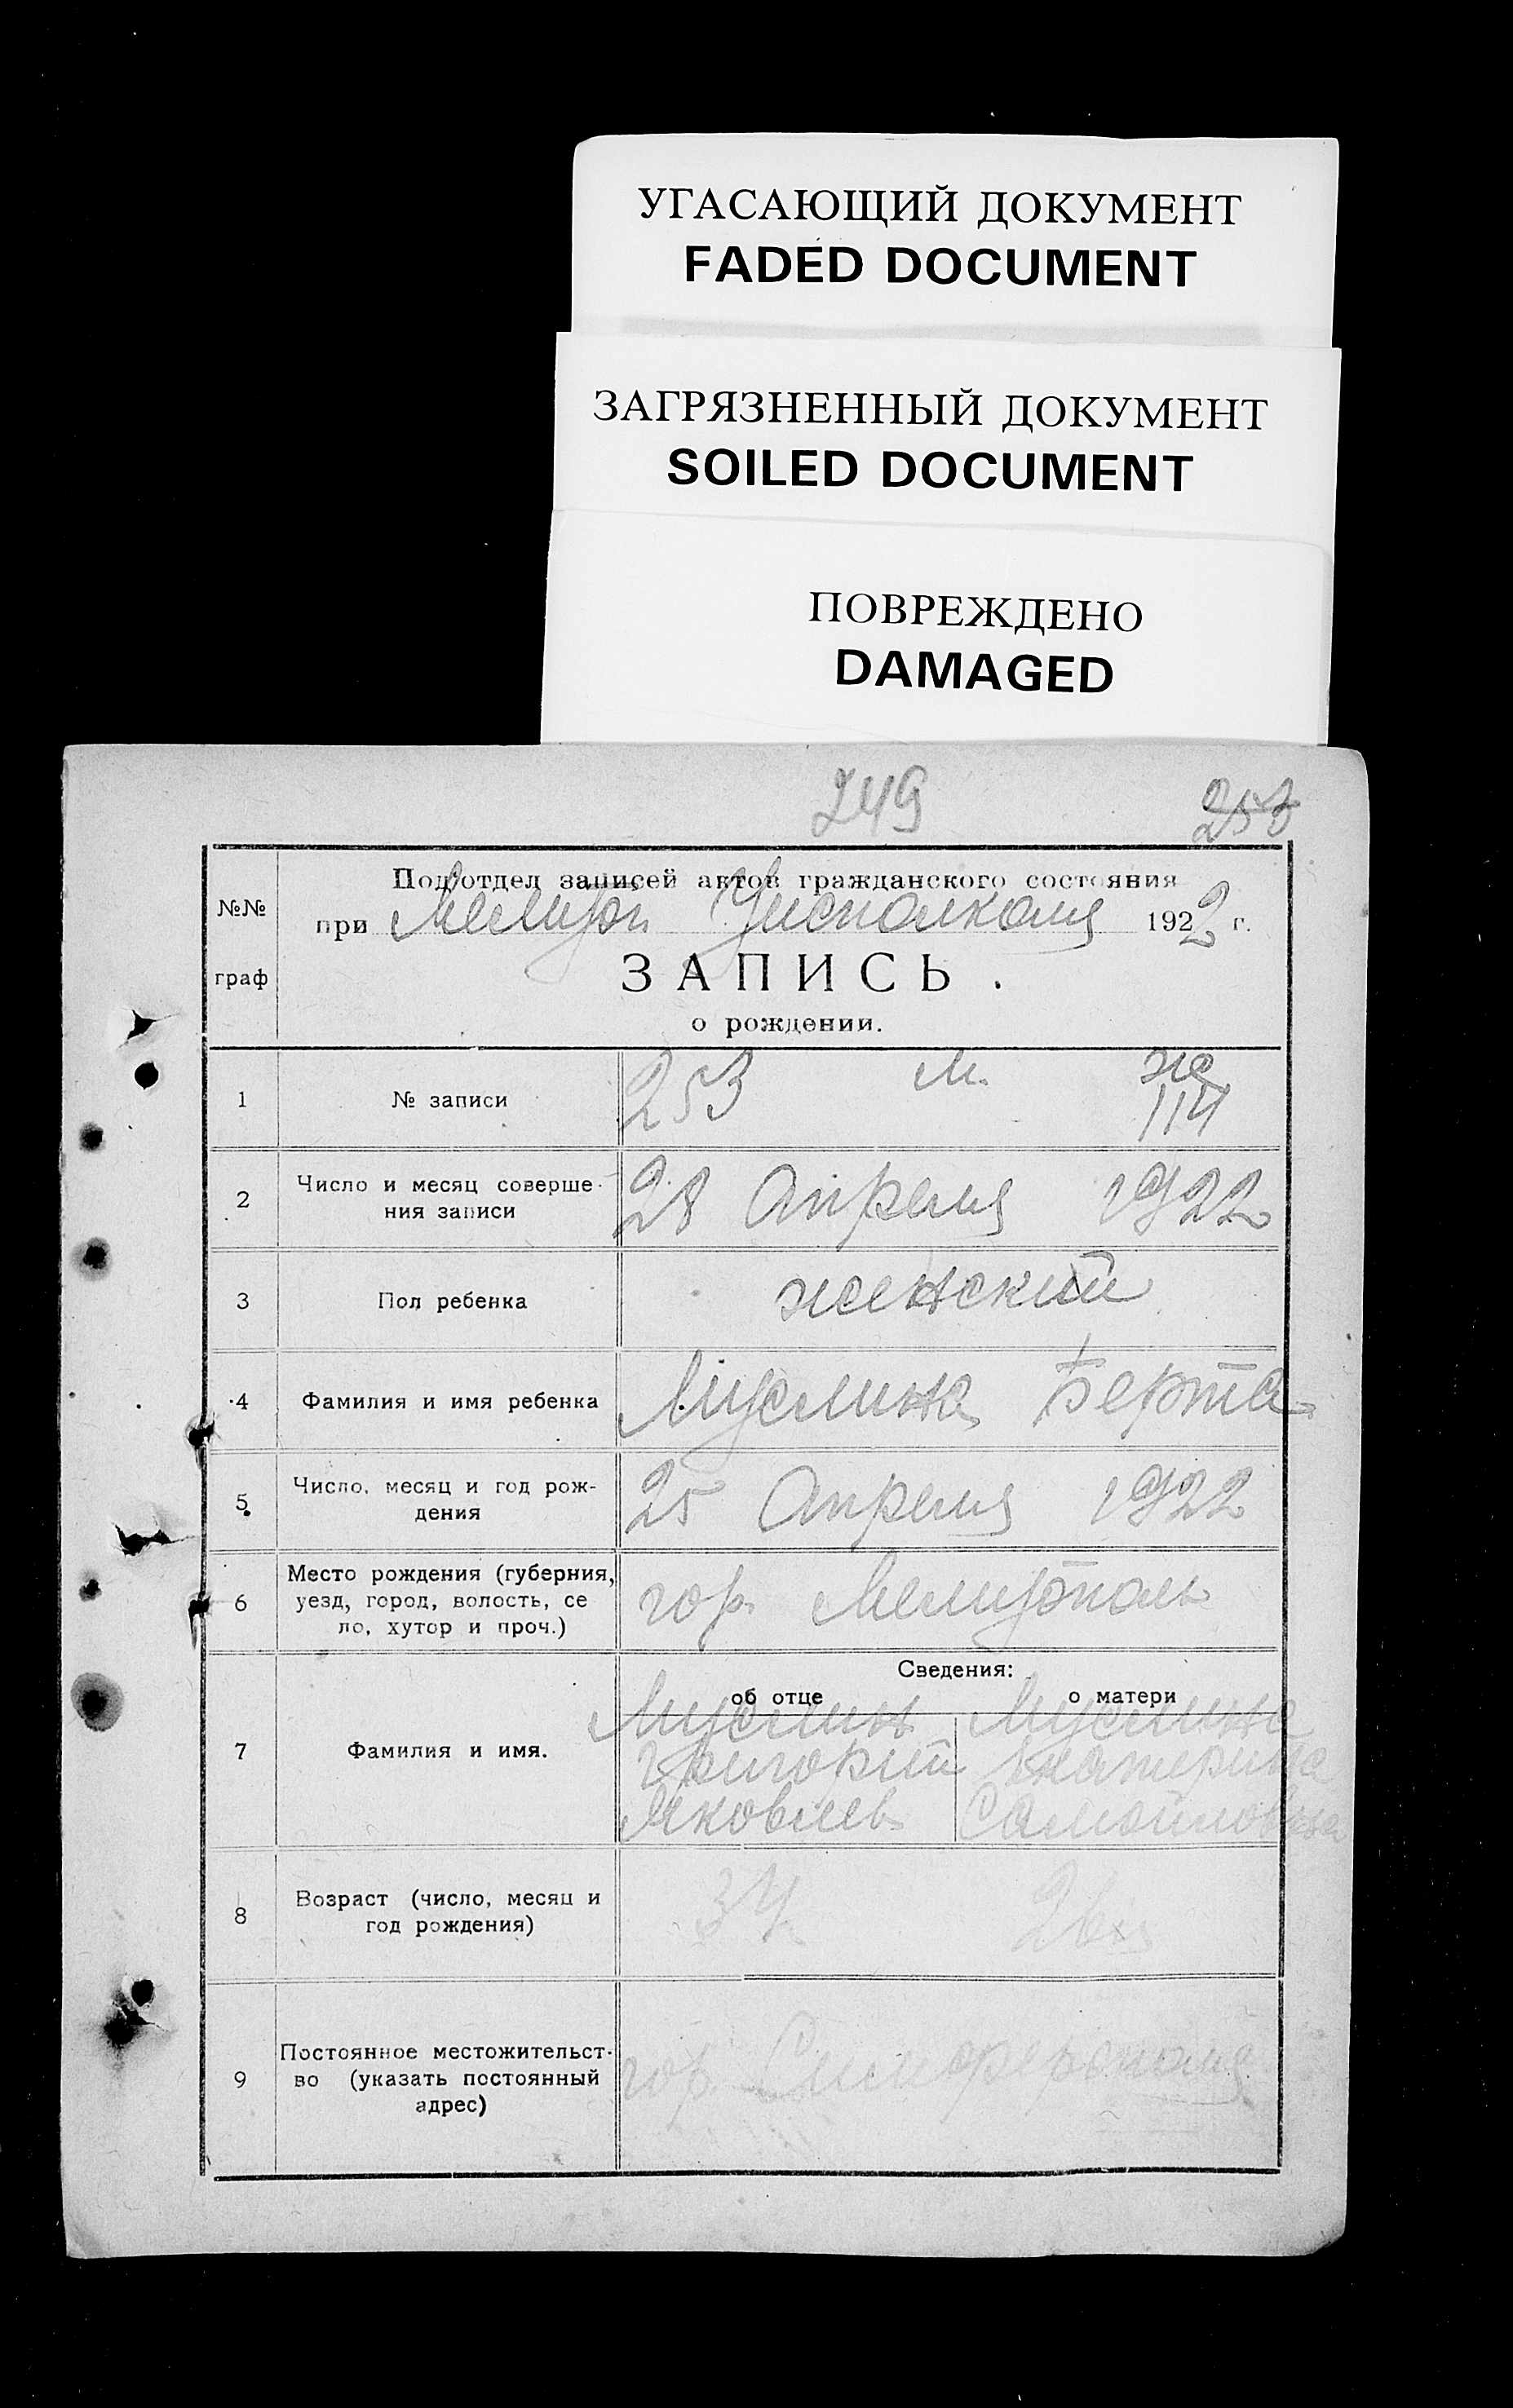 УГАСАЮЩИЙ ДОКУМЕНТ
FADED DOCUMENT
ЗАГРЯЗНЕННЫЙ ДОКУМЕНТ
SOILED DOCUMENT
ПОВРЕЖДЕНО
DAMAGED
249 253
№№ граф
Под'отдел записей актов гражданского состояния
при Мелитоп Уисполкома 1922 г.
ЗАПИСЬ.
о рождении.
1 № записи 253 м. же
114
2 Число и месяц соверше-
ния записи 28 Апреля 1922
3 Пол ребенка женский
4 Фамилия и имя ребенка Муслина Берта
5 Число, месяц и год рож-
дения 25 Апреля 1922
6 Место рождения (губерния,
уезд, город, волость, се
ло, хутор и проч.) гор. Мелитополь
Сведения:
об отце о матери
7 Фамилия и имя. Муслин Муслина
Григорий Екатерина
Яковлев Самойловна
8 Возраст (число, месяц и
год рождения) 34 26
9 Постоянное местожительст-
во (указать постоянный
адрес) гор. Симферополь